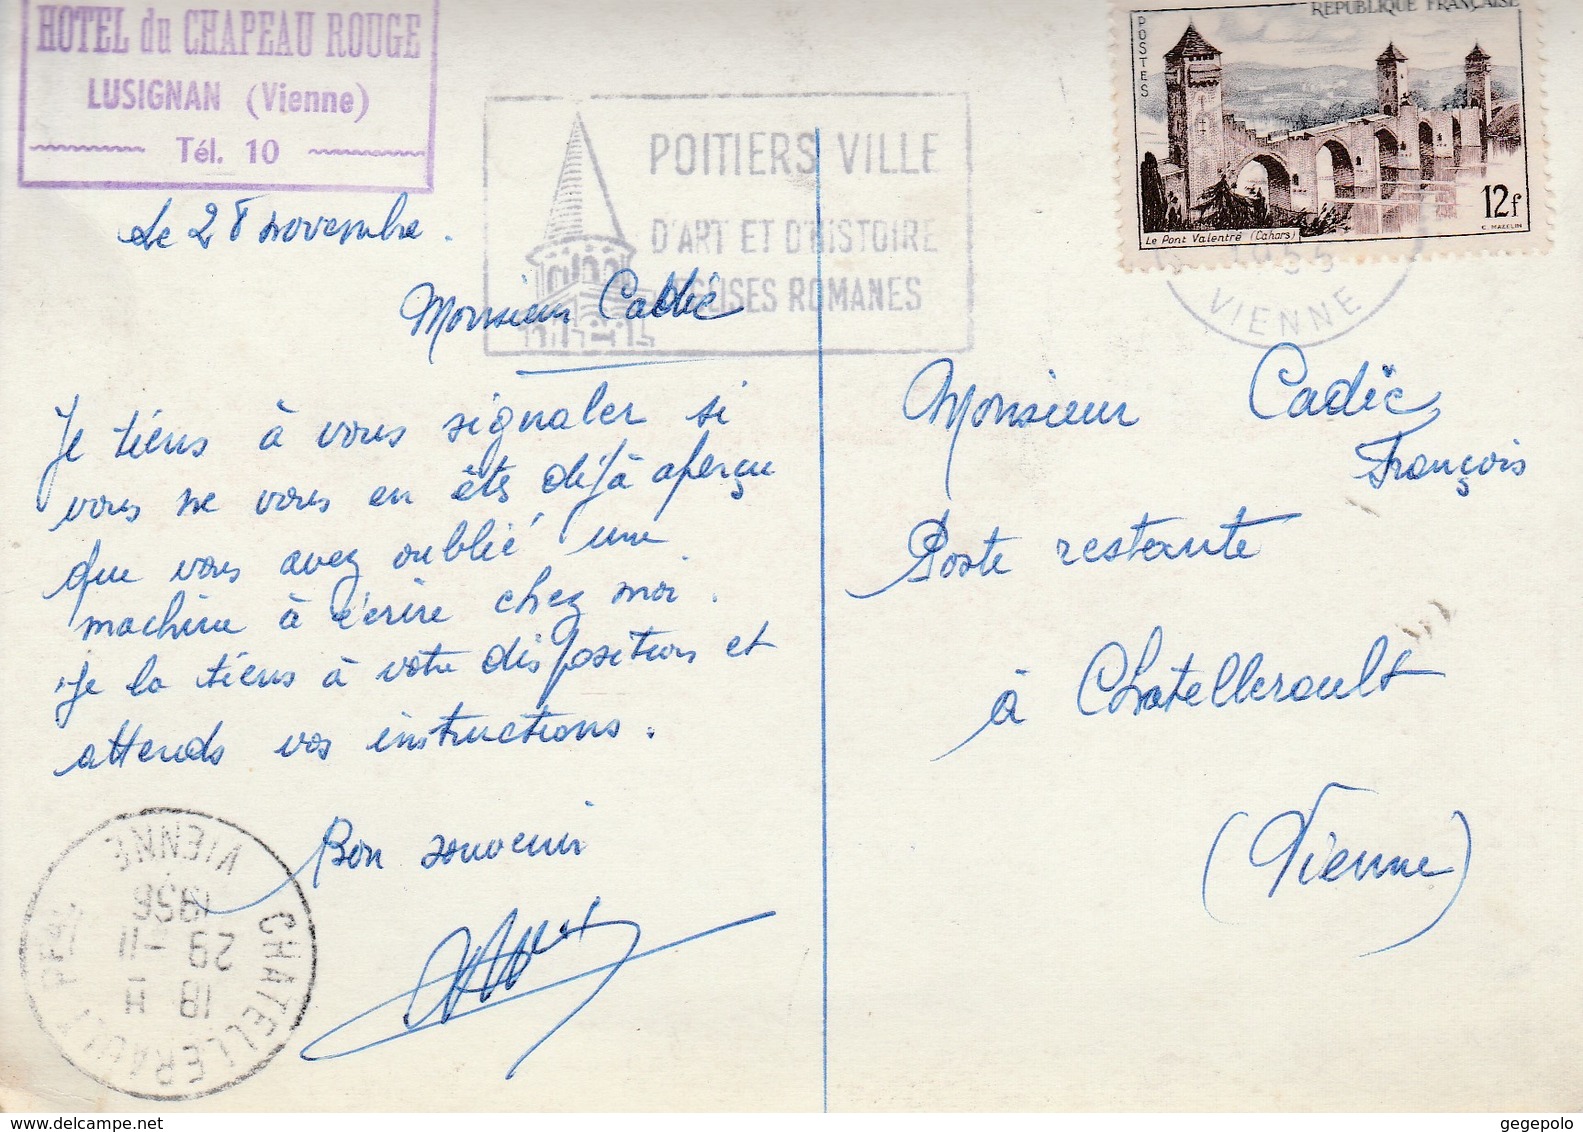 HOTEL du CHAPEAU ROUGE
LUSIGNAN (Vienne)
Tél. 10
POITIERS VILLE
D'ART ET D'HISTOIRE
EGLISES ROMANES
REPUBLIQUE FRANÇAISE
POSTES
12f
Le Pont Valentré (Cahors)
C. MAZELIN
VIENNE
Le 28 novembre.
Monsieur Cadic
Je tiens à vous signaler si
vous ne vous en êts déjà aperçu
que vous avez oublié une
machine à écrire chez moi.
Je la tiens à votre disposition et
attends vos instructions.
Bon souvenir
Monsieur Cadic
François
Poste restante
à Chatellerault
(Vienne)
CHATELLERAULT PPAL
18 H
29 -11
1956
VIENNE
gegepolo